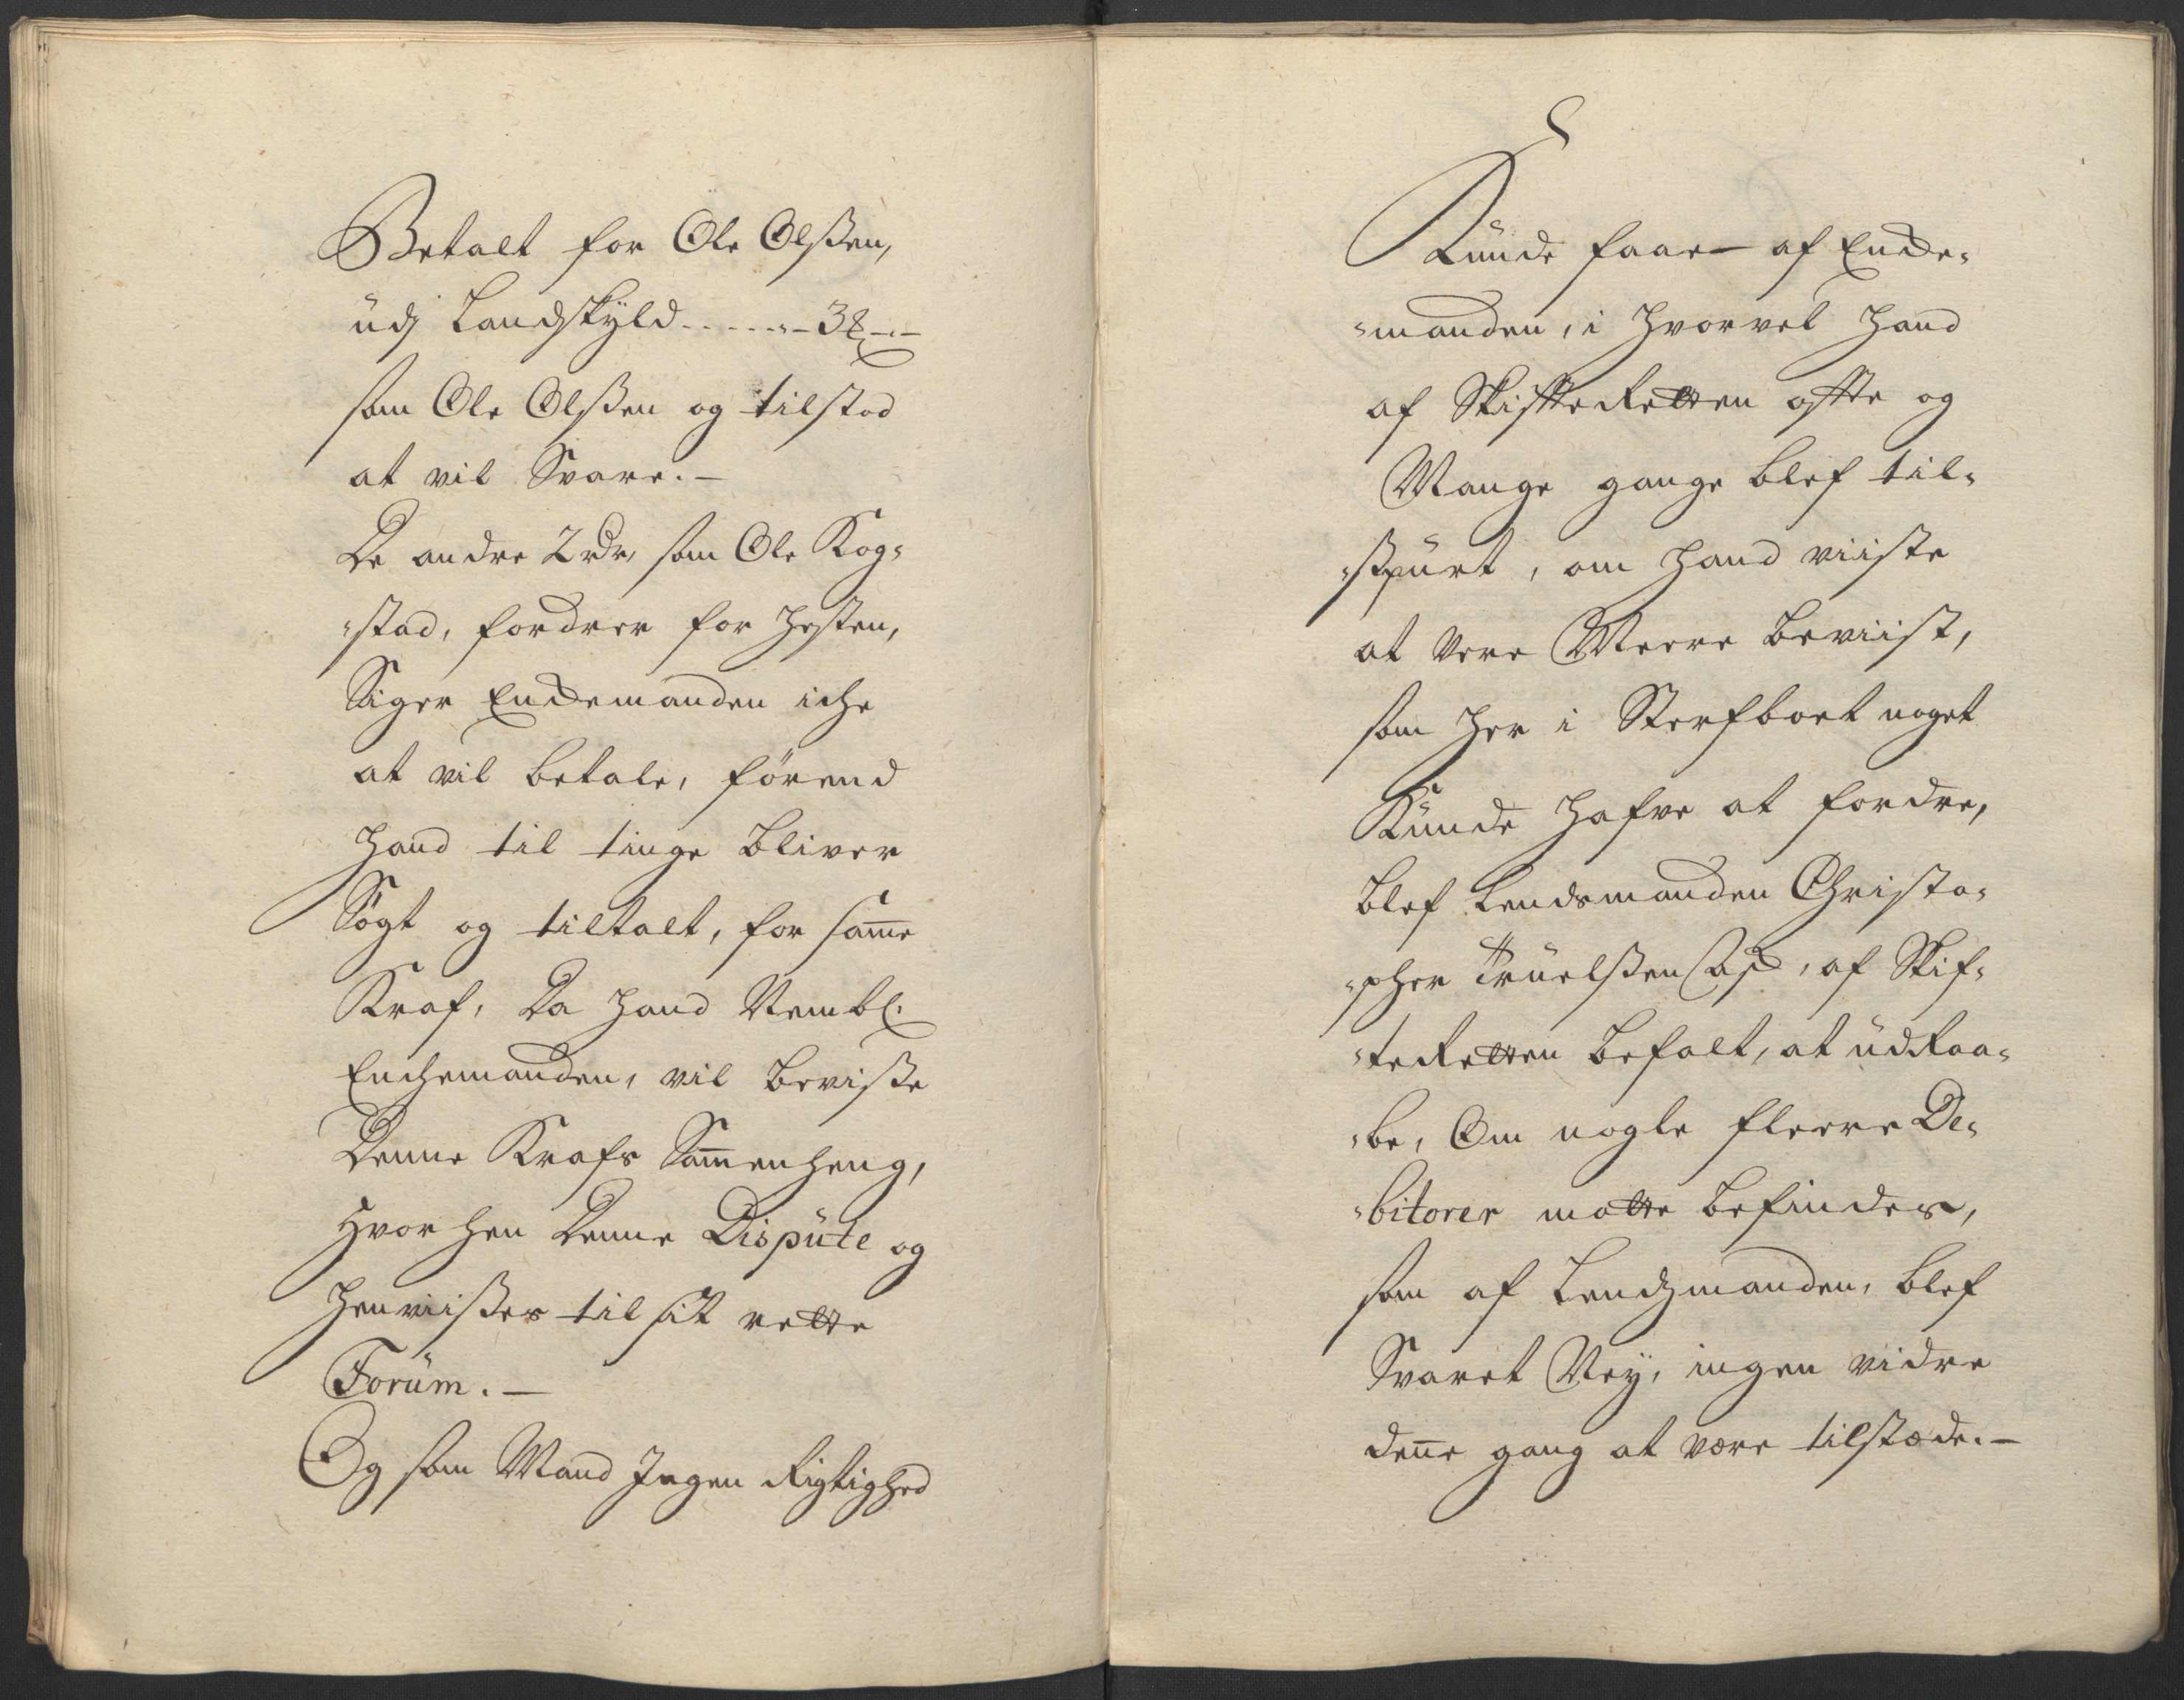 Betalt for Ole Olßen,
üdj Landskÿld . . . . . . - 3 ß - . -
som Ole Olßen og tilstod
at vil Svare. -
De andre 2 rdr, som Ole Kog-
-stad, fordrer for Hesten,
Siger Enckemanden iche
at vil betale, førend
Hand til tinge bliver
Søgt og tiltalt, for samme
Kraf, Da Hand Nembl:
Enchemanden, vil beviße
Denne Krafs Sammenheng,
Hvor hen Denne Dispüte og
Henviißes til sit rette
Forüm. -
Og som Mand Ingen Rigtighed
Künde faae - af Encke-
-manden, i Hvorvel Hand
af SkiffteRetten offte og
Mange gange blef til-
-spürt, om Hand viiste
at Vere Meere beviist,
som Her i Sterfboet noget
Künde Hafve at fordre,
blef Lendsmanden Christo-
-pher Trüelßen, af Skif-
-teRetten befalt, at üdRaa-
-be, Om nogle fleere De-
-bitorer motte befindes,
som af Lendzmanden, blef
Svaret Neÿ, ingen vidre
denne gang at være tilstæde. -